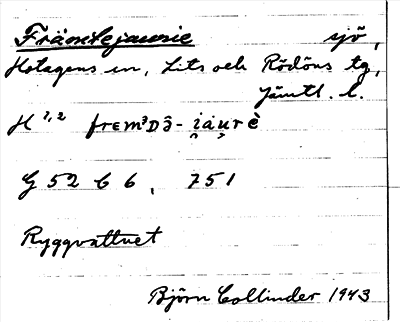 Främtejaurie sjö,
Hotagens sn, Lits och Rödöns tg,
Jämtl. l.
H 1,2 frɛm³Də̂- i̯au̯rè
G 52 C 6, 751
Ryggvattnet
Björn Collinder 1943